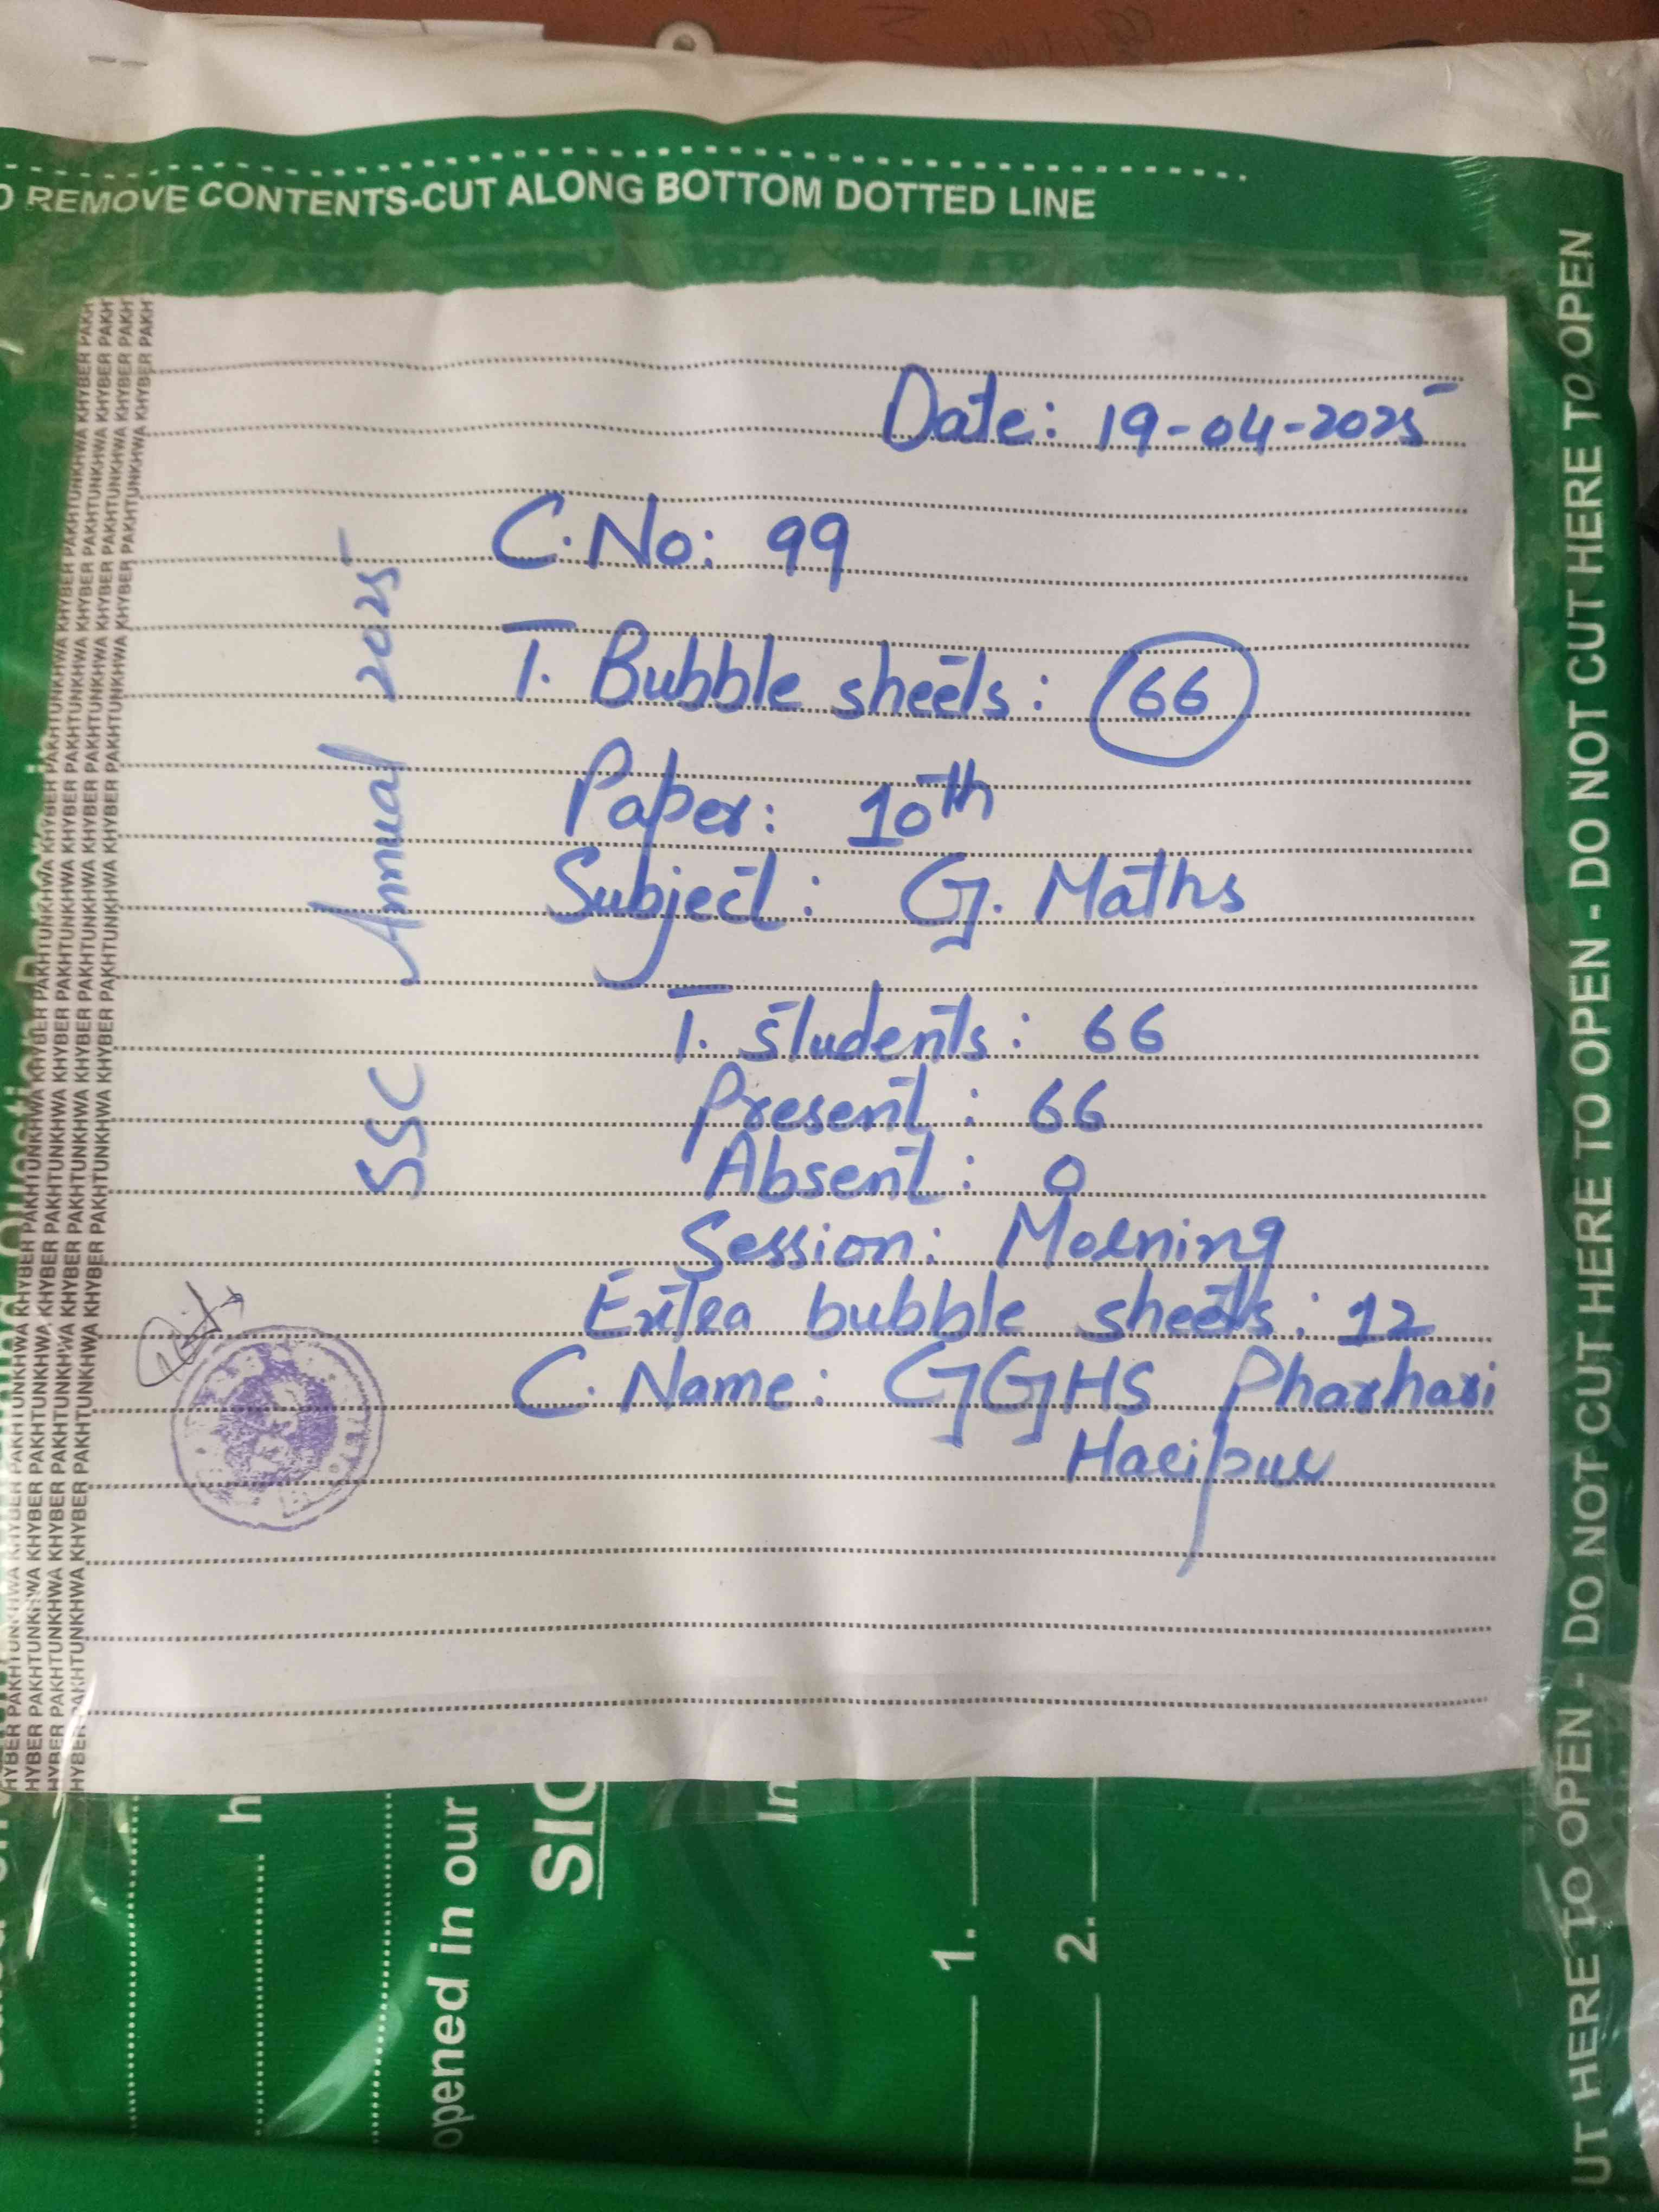 O REMOVE CONTENTS-CUT ALONG BOTTOM DOTTED LINE
Date: 19-04-2025
C.No: 99
T. Bubble sheets: 66
Paper: 10th
Subject: G. Maths
T. students: 66
Present: 66
Absent: 0
Session: Morning
Extra bubble sheets: 12
C. Name: GGHS Pharhari
Haripur
SSC Annual 2025
KHYBER PAKHTUNKHWA KHYBER PAKHTUNKHWA KHYBER PAKHTUNKHWA KHYBER PAKHTUNKHWA KHYBER PAKHTUNKHWA KHYBER PAKHTUNKHWA
UT HERE TO OPEN - DO NOT CUT HERE TO OPEN - DO NOT CUT HERE TO OPEN - DO NOT CUT HERE TO OPEN
h
opened in our
SIG
In
1.
2.